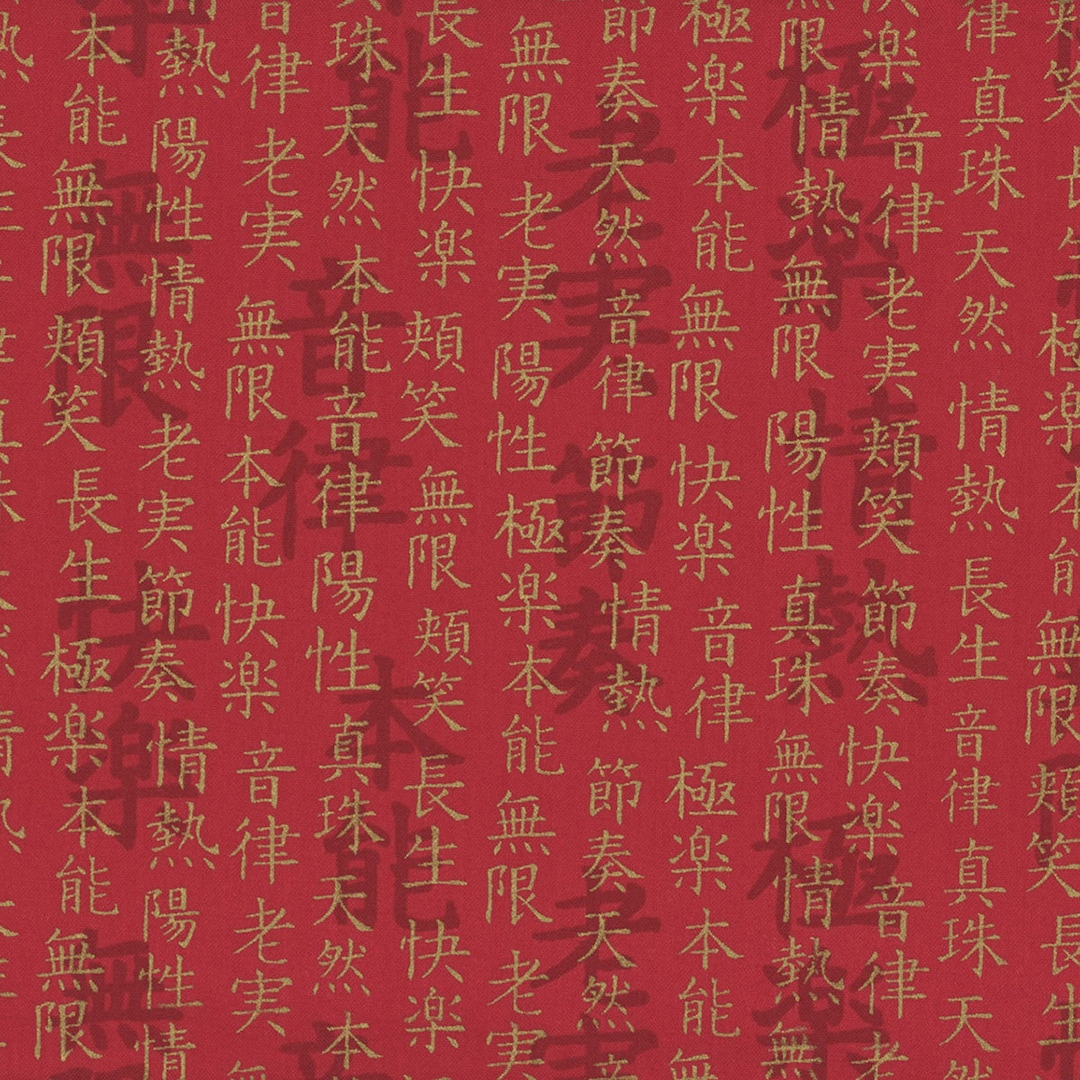 笑長生極楽本能無限頬笑長生
律真珠天然情熱長生音律真珠天然
快楽音律老実頬笑節奏快楽音律老
無限情熱無限陽性真珠無限情熱無
極楽本能無限快楽音律極楽本能無
節奏天然音律節奏情熱節奏天然音
無限老実陽性極楽本能無限老実
長生快楽頬笑無限頬笑長生快楽
真珠天然本能音律陽性真珠天然本
音律老実無限本能快楽音律老実無
熱陽性情熱老実節奏情熱陽性情
本能無限頬笑長生極楽本能無限
極楽情熱極楽
老実節奏老実
能音律本能音
無限快楽無